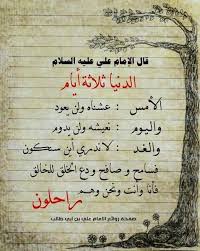 قال الإمام علي عليه السلام
الدنيا ثلاثة أيام
الأمس : عشناه ولن يعود
واليوم : نعيشه ولن يدوم
والغد : لاندري أين سنكون
فسامح و صافح ودع الخلق للخالق
فأنا وأنت ونحن وهم
راحلون
صفحة روائع الامام علي بن ابي طالب